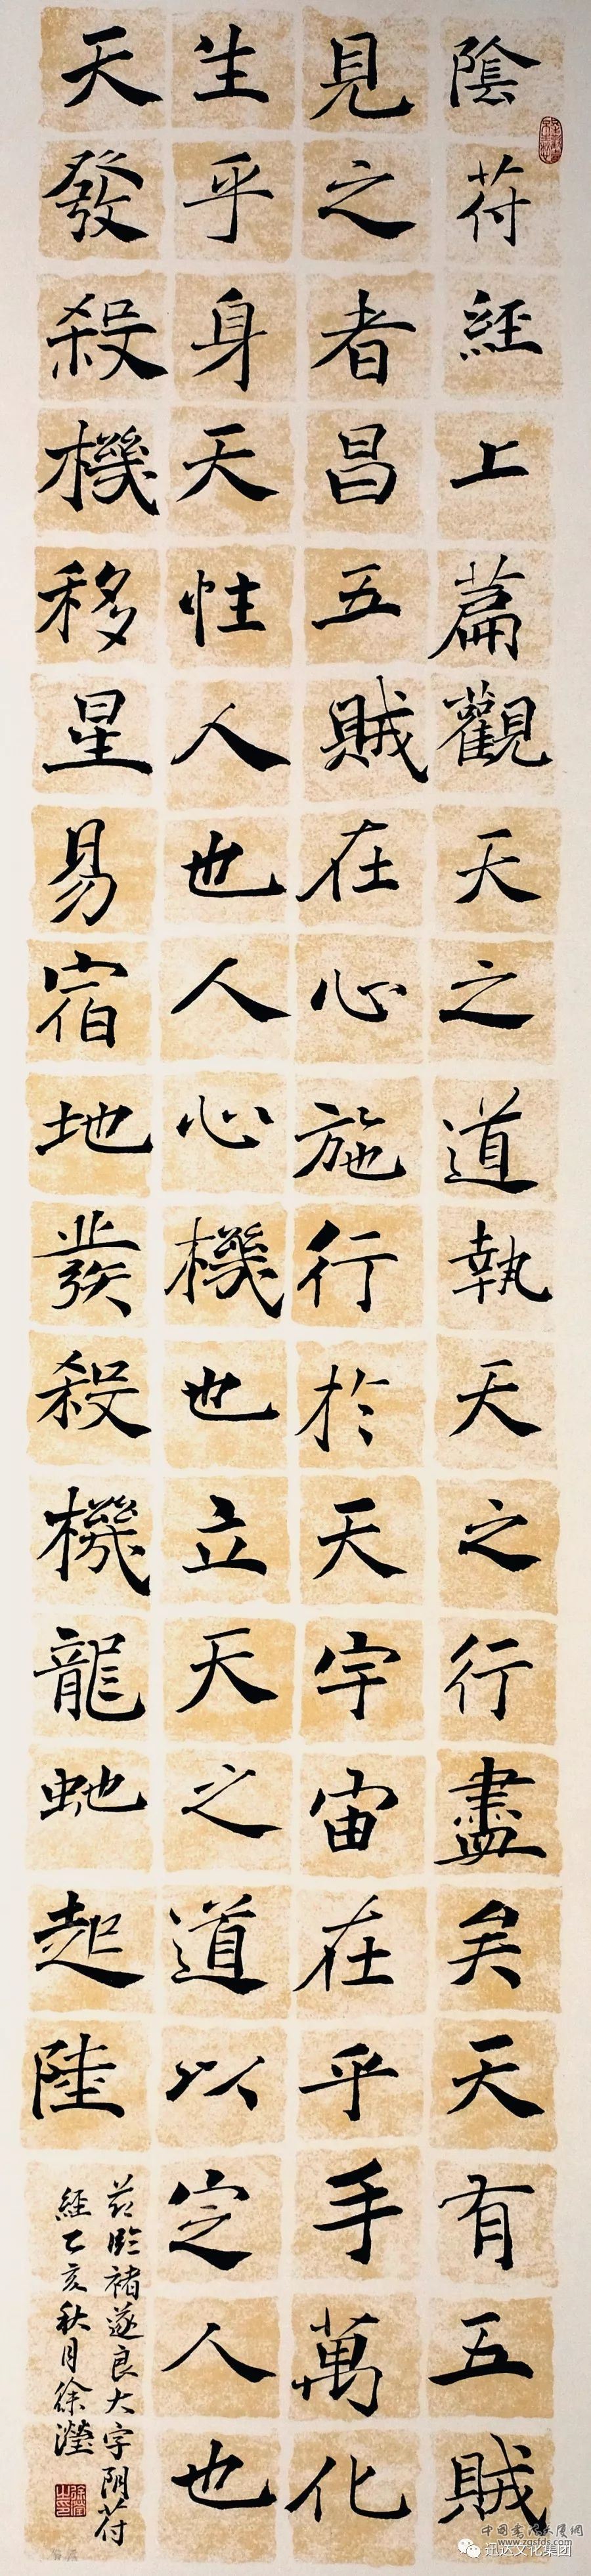 陰符經上篇觀天之道執天之行盡矣天有五賊
見之者昌五賊在心施行於天宇宙在乎手萬化
生乎身天性人也人心機也立天之道以定人也
天發殺機移星易宿地發殺機龍虵起陸
茲臨褚遂良大字阴符
經乙亥秋月徐瀅
中國書法大展網
www.zgsfds.com
迅达文化集团